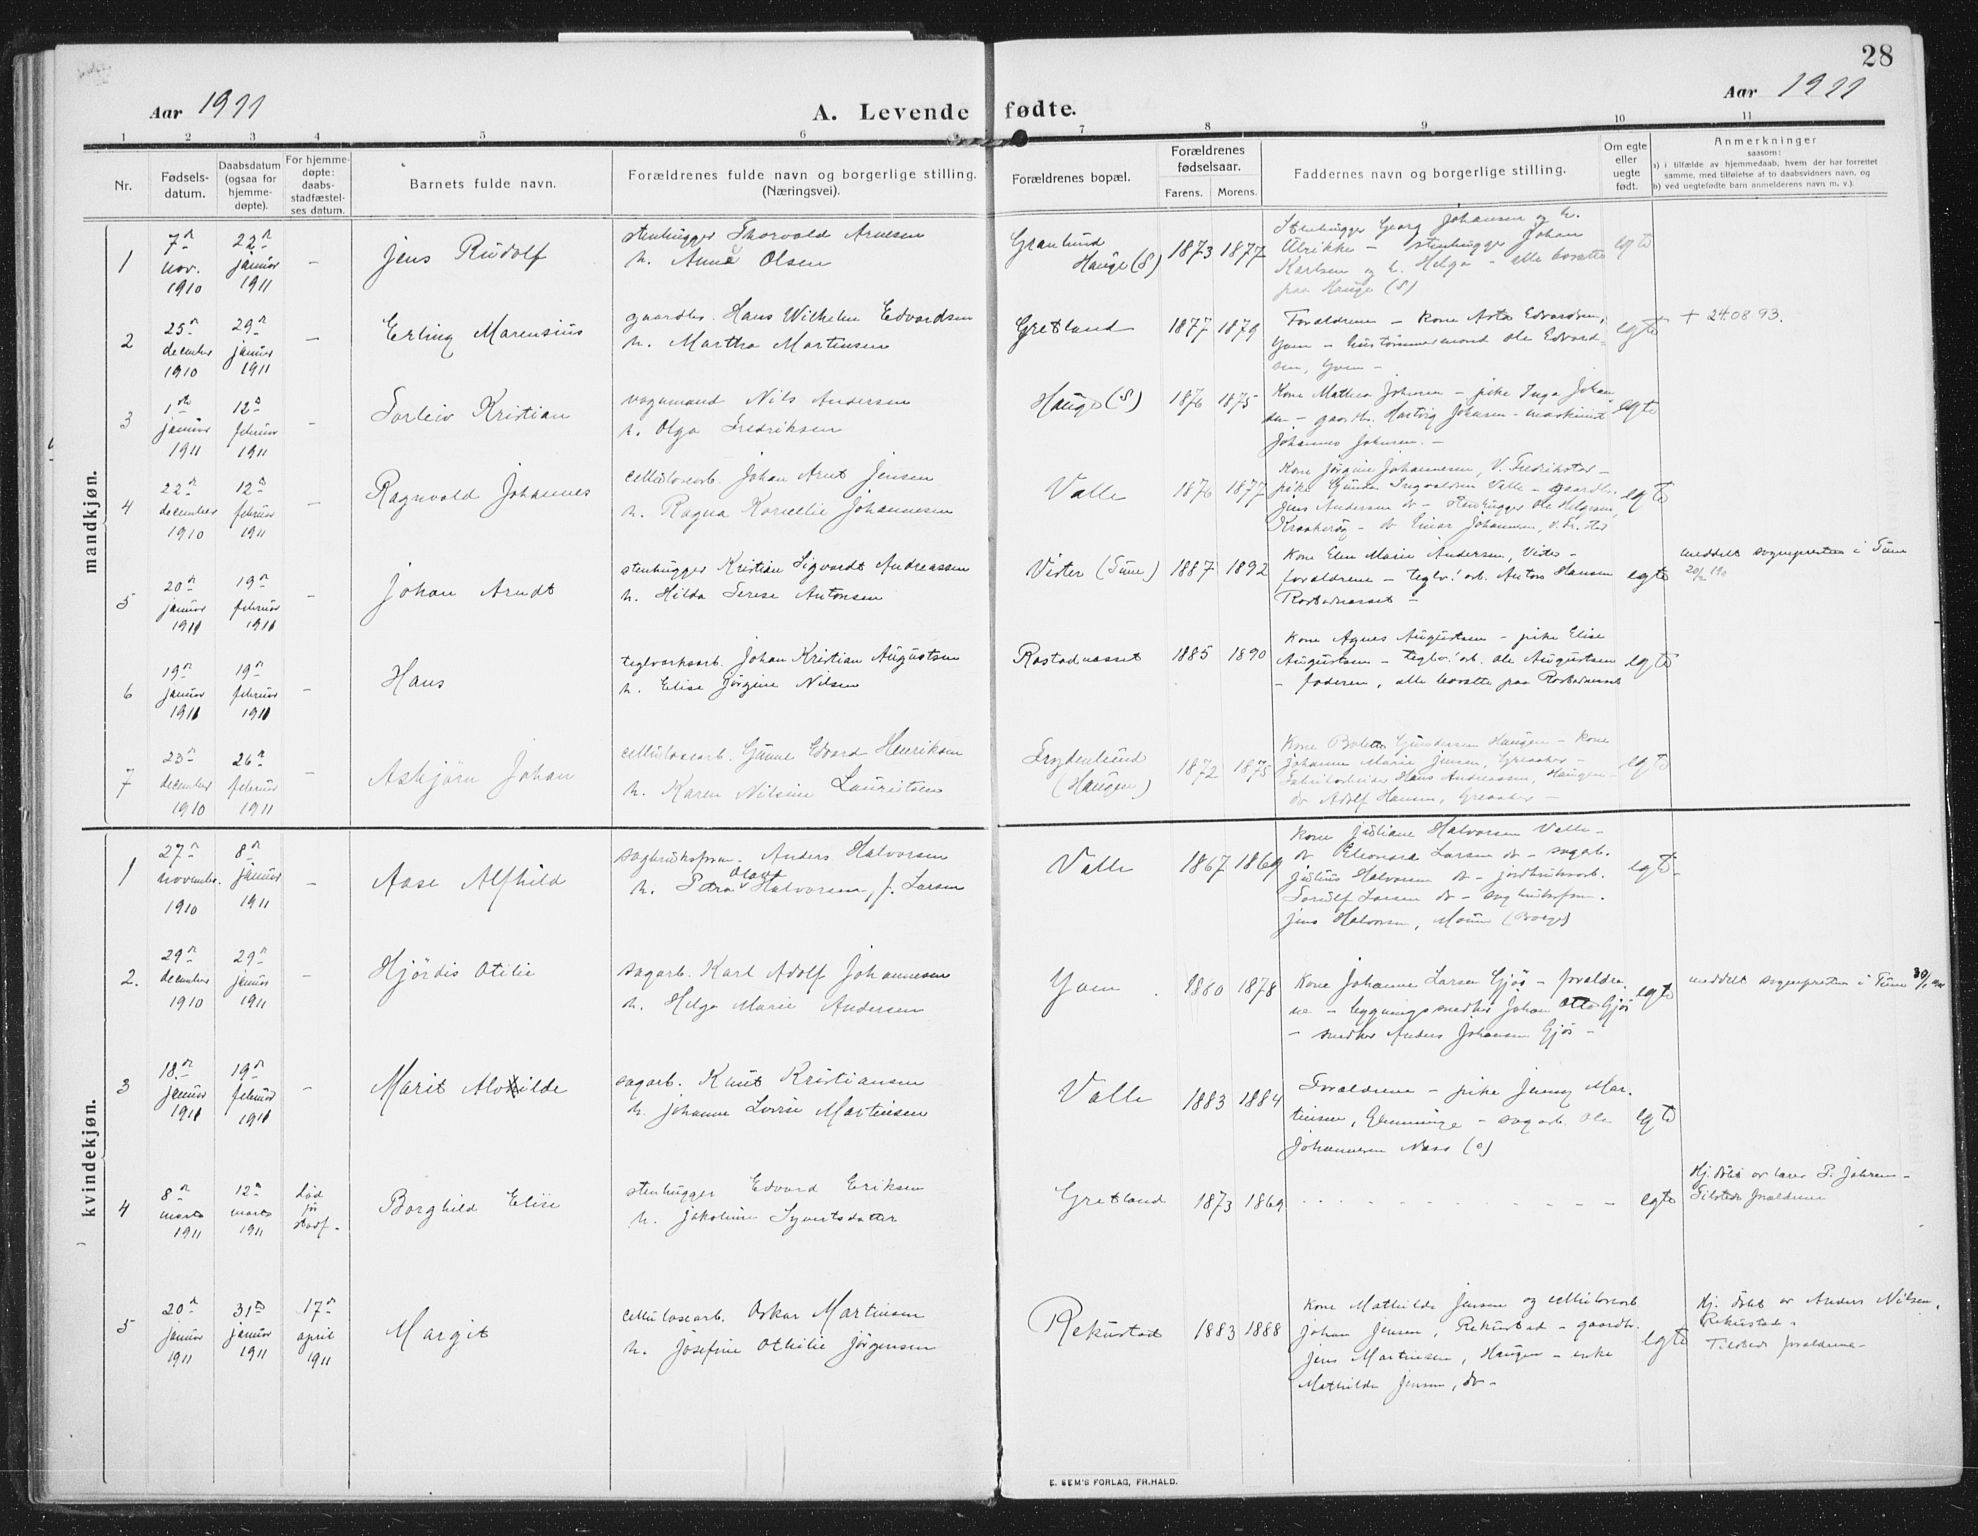 28
Aar 1911
A. Levende fødte.
Aar 1911
1 2 3 4 5 6 7 8 9 10 11
Nr.
Fødsels-
datum.
Daabsdatum
(ogsaa for
hjemme-
døpte).
For hjemme-
døpte:
daabs-
stadfæstel-
ses datum.
Barnets fulde navn.
Forældrenes fulde navn og borgerlige stilling.
(Næringsvei).
Forældrenes bopæl.
Forældrenes
fødselsaar.
Farens. Morens.
Faddernes navn og borgerlige stilling.
Om egte
eller
uegte
født.
Anmerkninger
saasom:
a) i tilfælde av hjemmedaab, hvem der har forrettet
samme, med tilføielse af to daabsvidners navn, og
b) ved uegtefødte barn anmelderens navn m. v.).
mandkjøn.
1
7de
nov.
1910
22de
januar
1911
–
Jens Rudolf
stenhugger Thorvald Arnesen
h. Anna Olsen
Granlund
Hauge (S)
1873 1877
Stenhugger Georg Johansen og h.
Ulrikke – stenhugger Johan
Karlsen og h. Helga – alle bosatte
paa Hauge (S)
egte
2
25de
december
1910
29de
januar
1911
–
Erling Marensius
gaardbr. Hans Wilhelm Edvardsen
h. Martha Martinsen
Gretland
1877 1879
Forældrene – kone Asta Edvardsen,
Yven – hustømmermand Ole Edvard-
sen, Yven –
egte
+ 24.08.93.
3
1ste
januar
1911
12te
februar
1911
–
Torleiv Kristian
vognmand Nils Andersen
h. Olga Fredriksen
Hauge (S)
1876 1875
Kone Mathea Johnsen – pike Inga Johan
sen – gaardbr. Hartvig Johnsen – maskinist
Johannes Johnsen. –
egte
4
22de
december
1910
12te
februar
1911
–
Ragnvald Johannes
cellulosearb. Johan Arnt Jensen
h. Ragna Kornelie Johannesen
Valle
1876 1877
Kone Jørgine Johannesen, V. Fredrikstad –
pike Gunda Ingvaldsen Valle – gaardbr.
Jens Andersen do – stenhugger Ole Helgesen,
Kraakerøy – do Einar Johannesen, V. Fr. stad
egte
5
20de
januar
1911
19de
februar
1911
–
Johan Arndt
stenhugger Kristian Sigvardt Andreassen
h. Hilda Terese Antonsen
Vister (Tune)
1887 1892
Kone Elen Marie Andersen, Vister –
forældrene – teglv. arb. Anton Hansen
Rostadnæsset –
egte
meddelt sognepresten i Tune
6
19de
januar
1911
19de
februar
1911
–
Hans
teglverksarb. Johan Kristian Augustsen
h. Elise Jørgine Nilsen
Rostadnæsset
1885 1890
Kone Agnes Augustsen – pike Elise
Augustsen – teglv. arb. Ole Augustsen
– faderen, alle bosatte paa Rostadnæsset
egte
7
23de
december
1910
26de
februar
1911
–
Asbjørn Johan
cellulosearb. Gunne Edvard Henriksen
h. Karen Nilsine Lauritsen
Frydenlund
(Haugen)
1872 1875
Kone Bolette Gundersen Haugen – kone
Johanne Marie Jensen, Greaaker –
Fabrikarbeider Hans Andreassen, Haugen –
do Adolf Hansen, Greaaker –
egte
kvindekjøn.
1
27de
november
1910
8de
januar
1911
–
Aase Alfhild
sagbruksform. Anders Halvorsen
h. Petra Olava Halvorsen, f. Larsen
Valle
1867 1869
Kone Juliane Halvorsen Valle –
do Eleonora Larsen do – sagarb.
Julius Halvorsen do – jordbruksarb.
Torulf Larsen do – sagbruksfm.
Jens Halvorsen, Moum (Borge)
egte –
2.
29de
december
1910
29de
januar
1911
–
Hjördis Otilie
sagarb. Karl Adolf Johannesen
h. Helga Marie Andersen
Yven
1880 1878
Kone Johanne Larsen Gjøs – forældre
ne – bygningssnedker Johan Otto Gjøs
– snedker Anders Johansen Gjøs –
egte
meddelt sognepresten i Tune
3
18de
januar
1911
19de
februar
1911
–
Marit Alvilde
sagarb. Knut Kristiansen
h. Johanne Lovise Martinsen
Valle
1883 1884
Forældrene – pike Jenny Mar-
tinsen, Glemminge – sagarb. Ole
Johannesen Næss (o)
egte
4
8de
marts
1911
12te
marts
1911
død
før
stadf –
Borghild Elise
stenhugger Edvard Eriksen
h. Jakobine Syvertsdatter
Gretland
1873 1869
– – – – – – – –
egte
Hj. døbt av lærer P. Johnsen –
Tilstede forældrene
5
20de
januar
1911
31te
januar
1911
17de
april
1911
Margit
cellulosearb. Oskar Martinsen
h. Josefine Othilie Jørgensen
Rekustad
1883 1888
Kone Mathilde Jensen og cellulosearb
Johan Jensen, Rekustad – gaardbr.
Jens Martinsen, Haugen – enke
Mathilde Jensen, do –
egte
Hj. døbt av Anders Nilsen,
Rekustad –
Tilstede forældrene –
E. SEM'S FORLAG, FR.HALD.